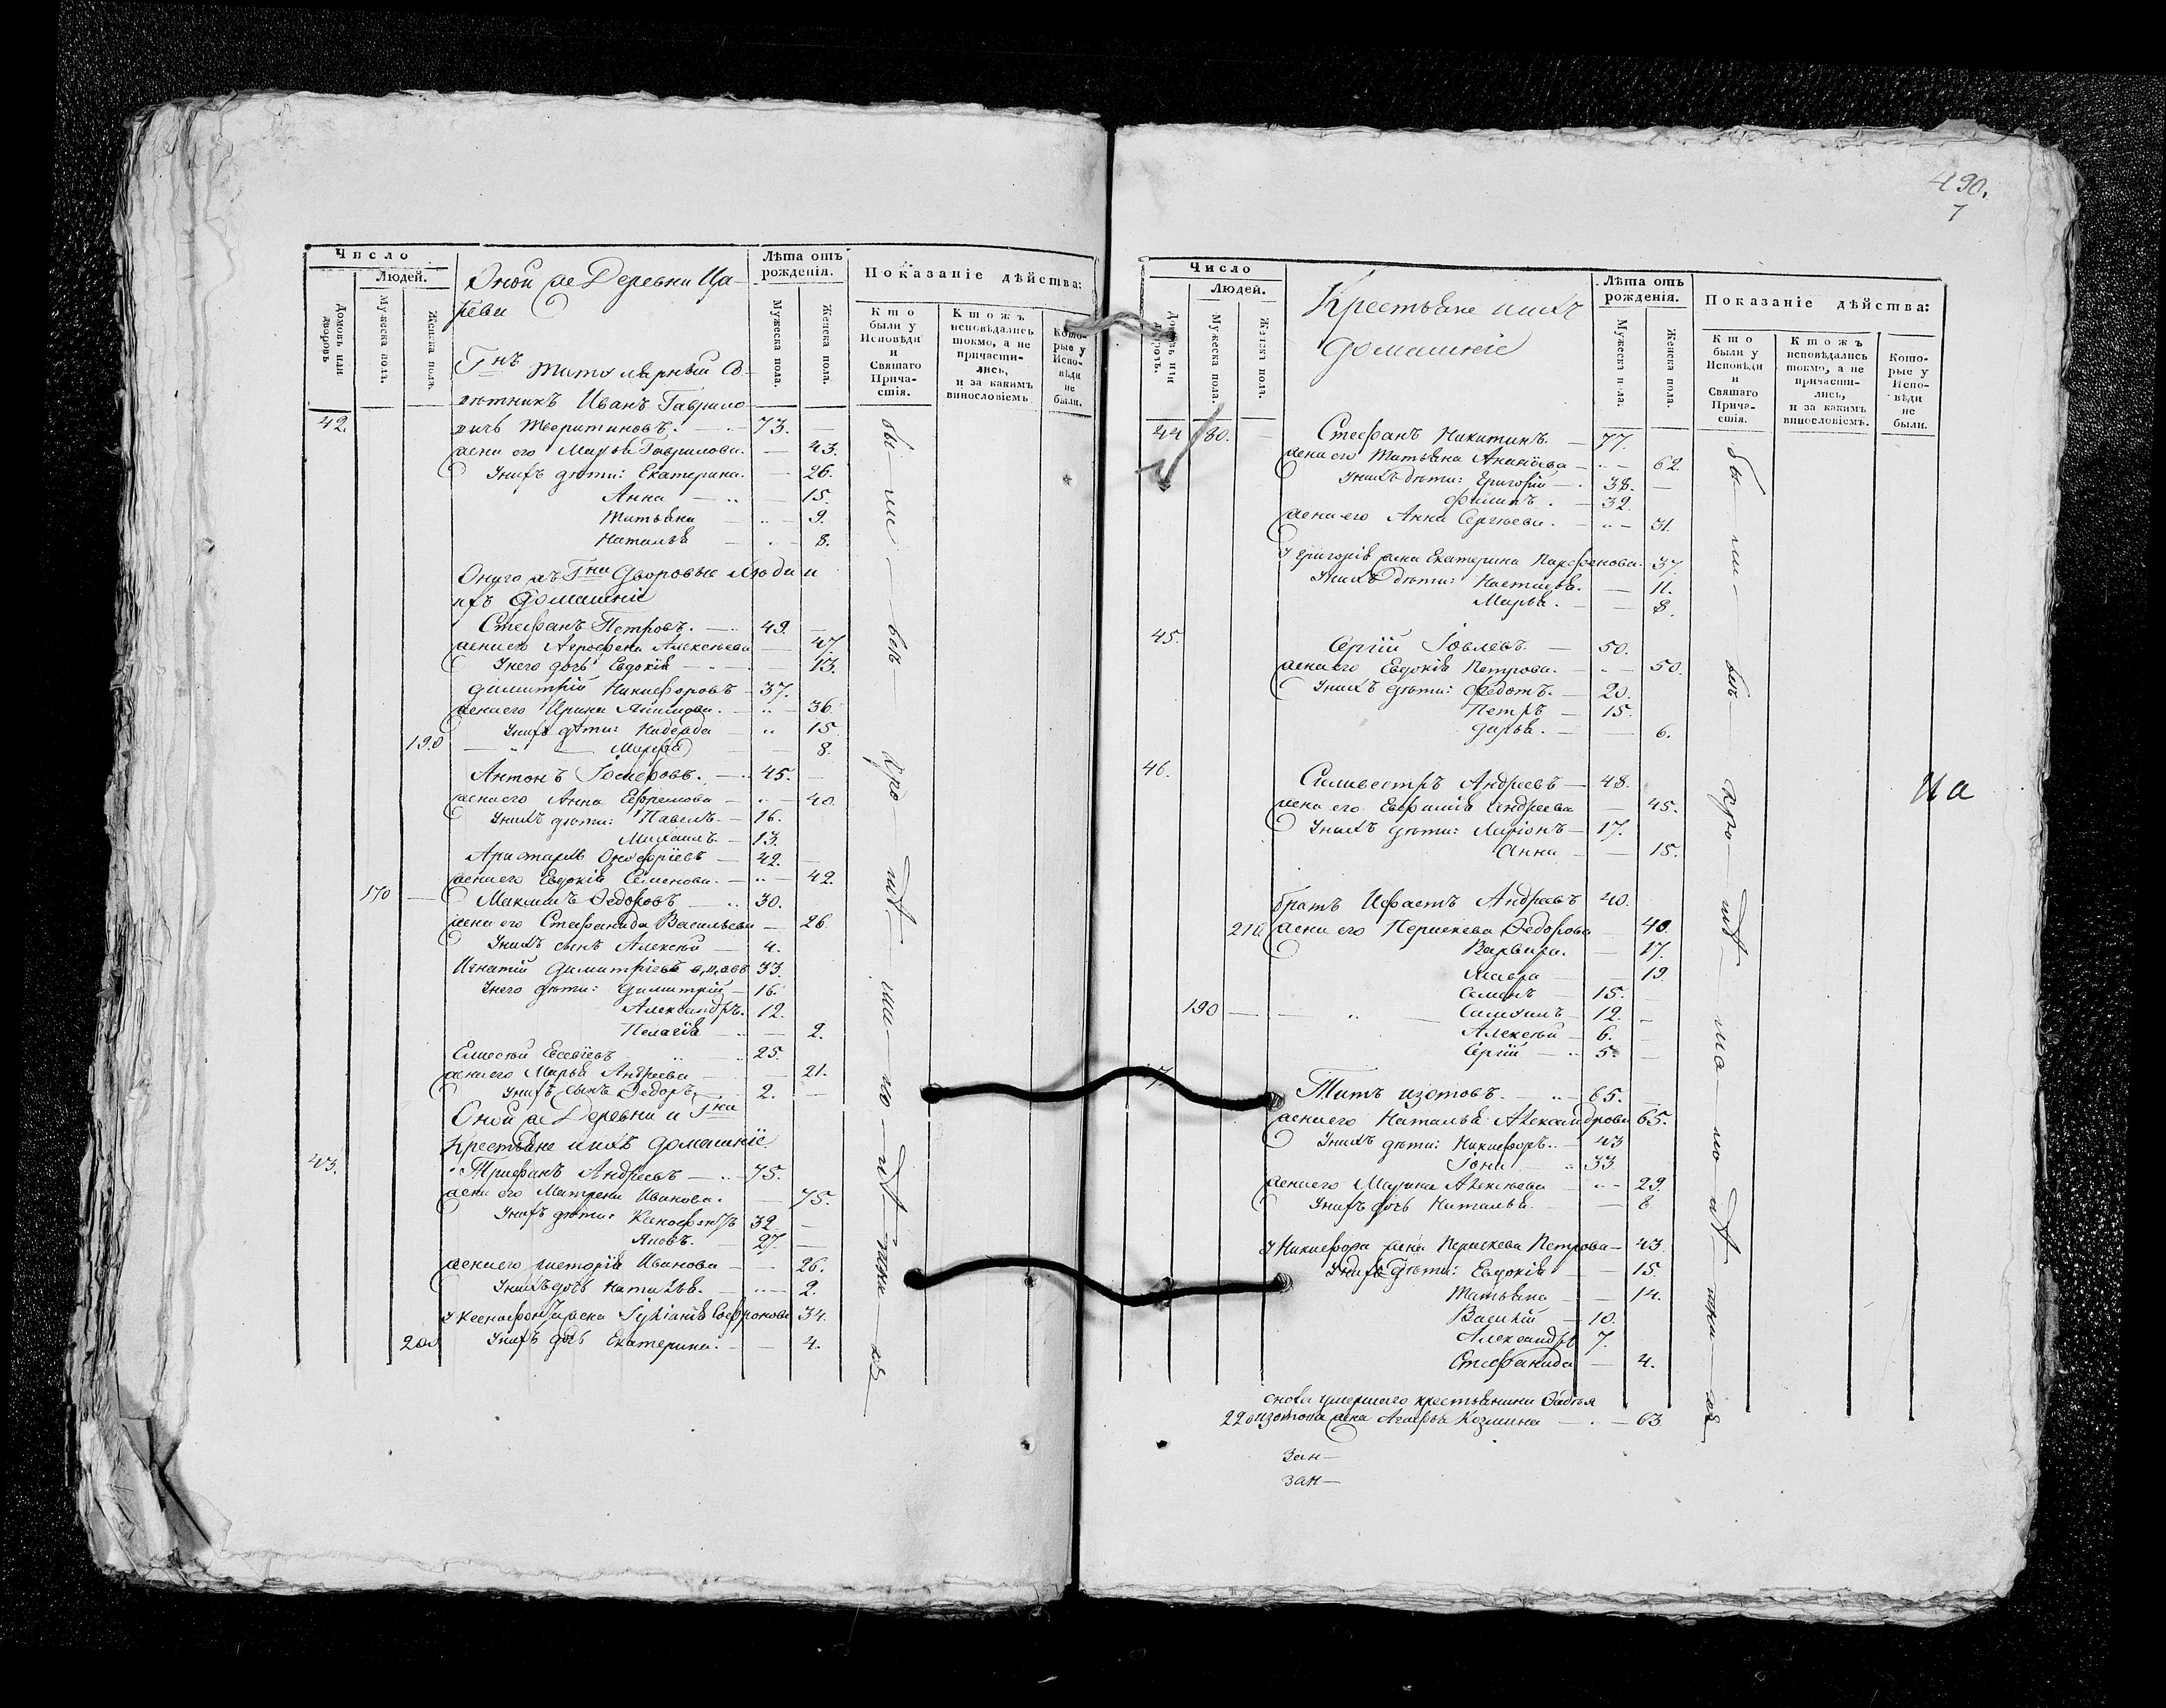 Число
Людей.
Домовъ или дворовъ
Мужеска пола.
Женска пола.
Оной же Деревни Ца-
реви
Лѣта отъ рожденія.
Мужеска пола.
Женска пола.
Показаніе дѣйства:
Кто были у Исповѣди и Святаго Прича-стія.
Ктожъ исповѣдались токмо, а не причасти-лись, и за какимъ винословіемъ
Кото-рые у Испо-вѣди не были.
Гнъ титулярный Со-
вѣтникъ Иванъ Гаврило
42. вичь 73. —
жена его Марья Гаврилова. — 43.
У нихъ дѣти: Екатерина. — 26.
Анна — 15.
Татьяна — 9.
Наталья — 8.
Онаго жъ Гна Дворовые люди и
ихъ домашніе
Стефанъ Петровъ. — 49. —
жена его Агрофена Алексѣева — 47.
У него дочь Евдокія — 13.
Димитрій Никифоровъ — 37.
жена его Ирина Якимова. — 36.
У нихъ дѣти: Надежда — 15
190 — Марфа — 8.
Антонъ Іосифовъ. — 45. —
жена его Анна Ефремова — 40.
У нихъ дѣти: Павелъ. — 16.
Михаилъ. — 13.
Аристархъ Онофріевъ — 42. —
жена его Евдокія Семенова. — 42.
170 — Максимъ Ѳедоровъ — 30.
жена его Стефанида Васильева — 26.
У нихъ сынъ Алексѣй — 4.
Игнатій Димитріевъ вдовъ 33.
У него дѣти: Димитрій — 16.
Александръ. 12.
Пелагія — 2.
Елисѣй Евсевіевъ 25.
жена его Марья Андреева — 21.
У нихъ сынъ Ѳедоръ 2. —
Оной же Деревни и Гна
Крестьяне и ихъ домашніе
43. Трифанъ Андреевъ — 75.
жена его Матрена Иванова. — 75.
У нихъ дѣти: Ксенофонтъ 32. —
Яковъ. 27. —
жена его Иванова — 26.
У нихъ дочь Наталья. — 2.
У Ксенофонта жена Іуліанія Софронова 34.
200 У нихъ дочь Екатерина. — 4.
бы — ли — въ —
490.
7
Число
Людей.
Домовъ или дворовъ.
Мужеска пола.
Женска пола.
Крестьяне и ихъ
домашніе
Лѣта отъ рожденія.
Мужеска пола.
Женска пола.
Показаніе дѣйства:
Кто были у Исповѣди и Святаго Прича-стія.
Ктожъ исповѣдались токмо, а не причасти-лись, и за какимъ винословіемъ.
Кото-рые у Испо-вѣди не были.
44 180. — Стефанъ Никитинъ. — 77.
жена его Татьяна Ананьева — 62.
У нихъ дѣти: Григорій — 38. —
Филипъ. — 32.
жена его Анна Сергѣева. — 31.
У Григорія жена Екатерина Парфенова. 37.
У нихъ дѣти: Настасья. — 11.
Марья. — 8.
45. Сергій Іовлевъ. — 50.
жена его Евдокія Петрова. — 50.
У нихъ дѣти: Федотъ. — 20.
Петръ — 15.
Дарья. — 6.
46. Силивестръ Андреевъ — 48.
жена его Евфимія Андреева — 45.
У нихъ дѣти: Ларіонъ — 17.
Анна — 15.
братъ Андреевъ 40.
210. жена его Пераскева Ѳедорова 40.
Варвара. — 17.
Мавра — 19.
Семенъ — 15. —
190 — Самоилъ — 12. —
Алексѣй — 6. —
Сергій — 5. —
7. Титъ Изотовъ. — 65. —
жена его Наталья Александрова 65.
У нихъ дѣти: Никифоръ. — 43
Іона. — 33.
жена его Марина Алексѣева — 29.
У нихъ дочь Наталья. — 8
У Никифора жена Пераскева Петрова — 43.
У нихъ дѣти: Евдокія — 15.
Татьяна — 14.
Василій — 10.
Александръ 7.
Стефанида — 4.
снова умершаго крестьянина Ѳадѣя
220 Изотова жена Агафья Козмина — 63.
Зан—
зан—
бы — ли — въ —
на